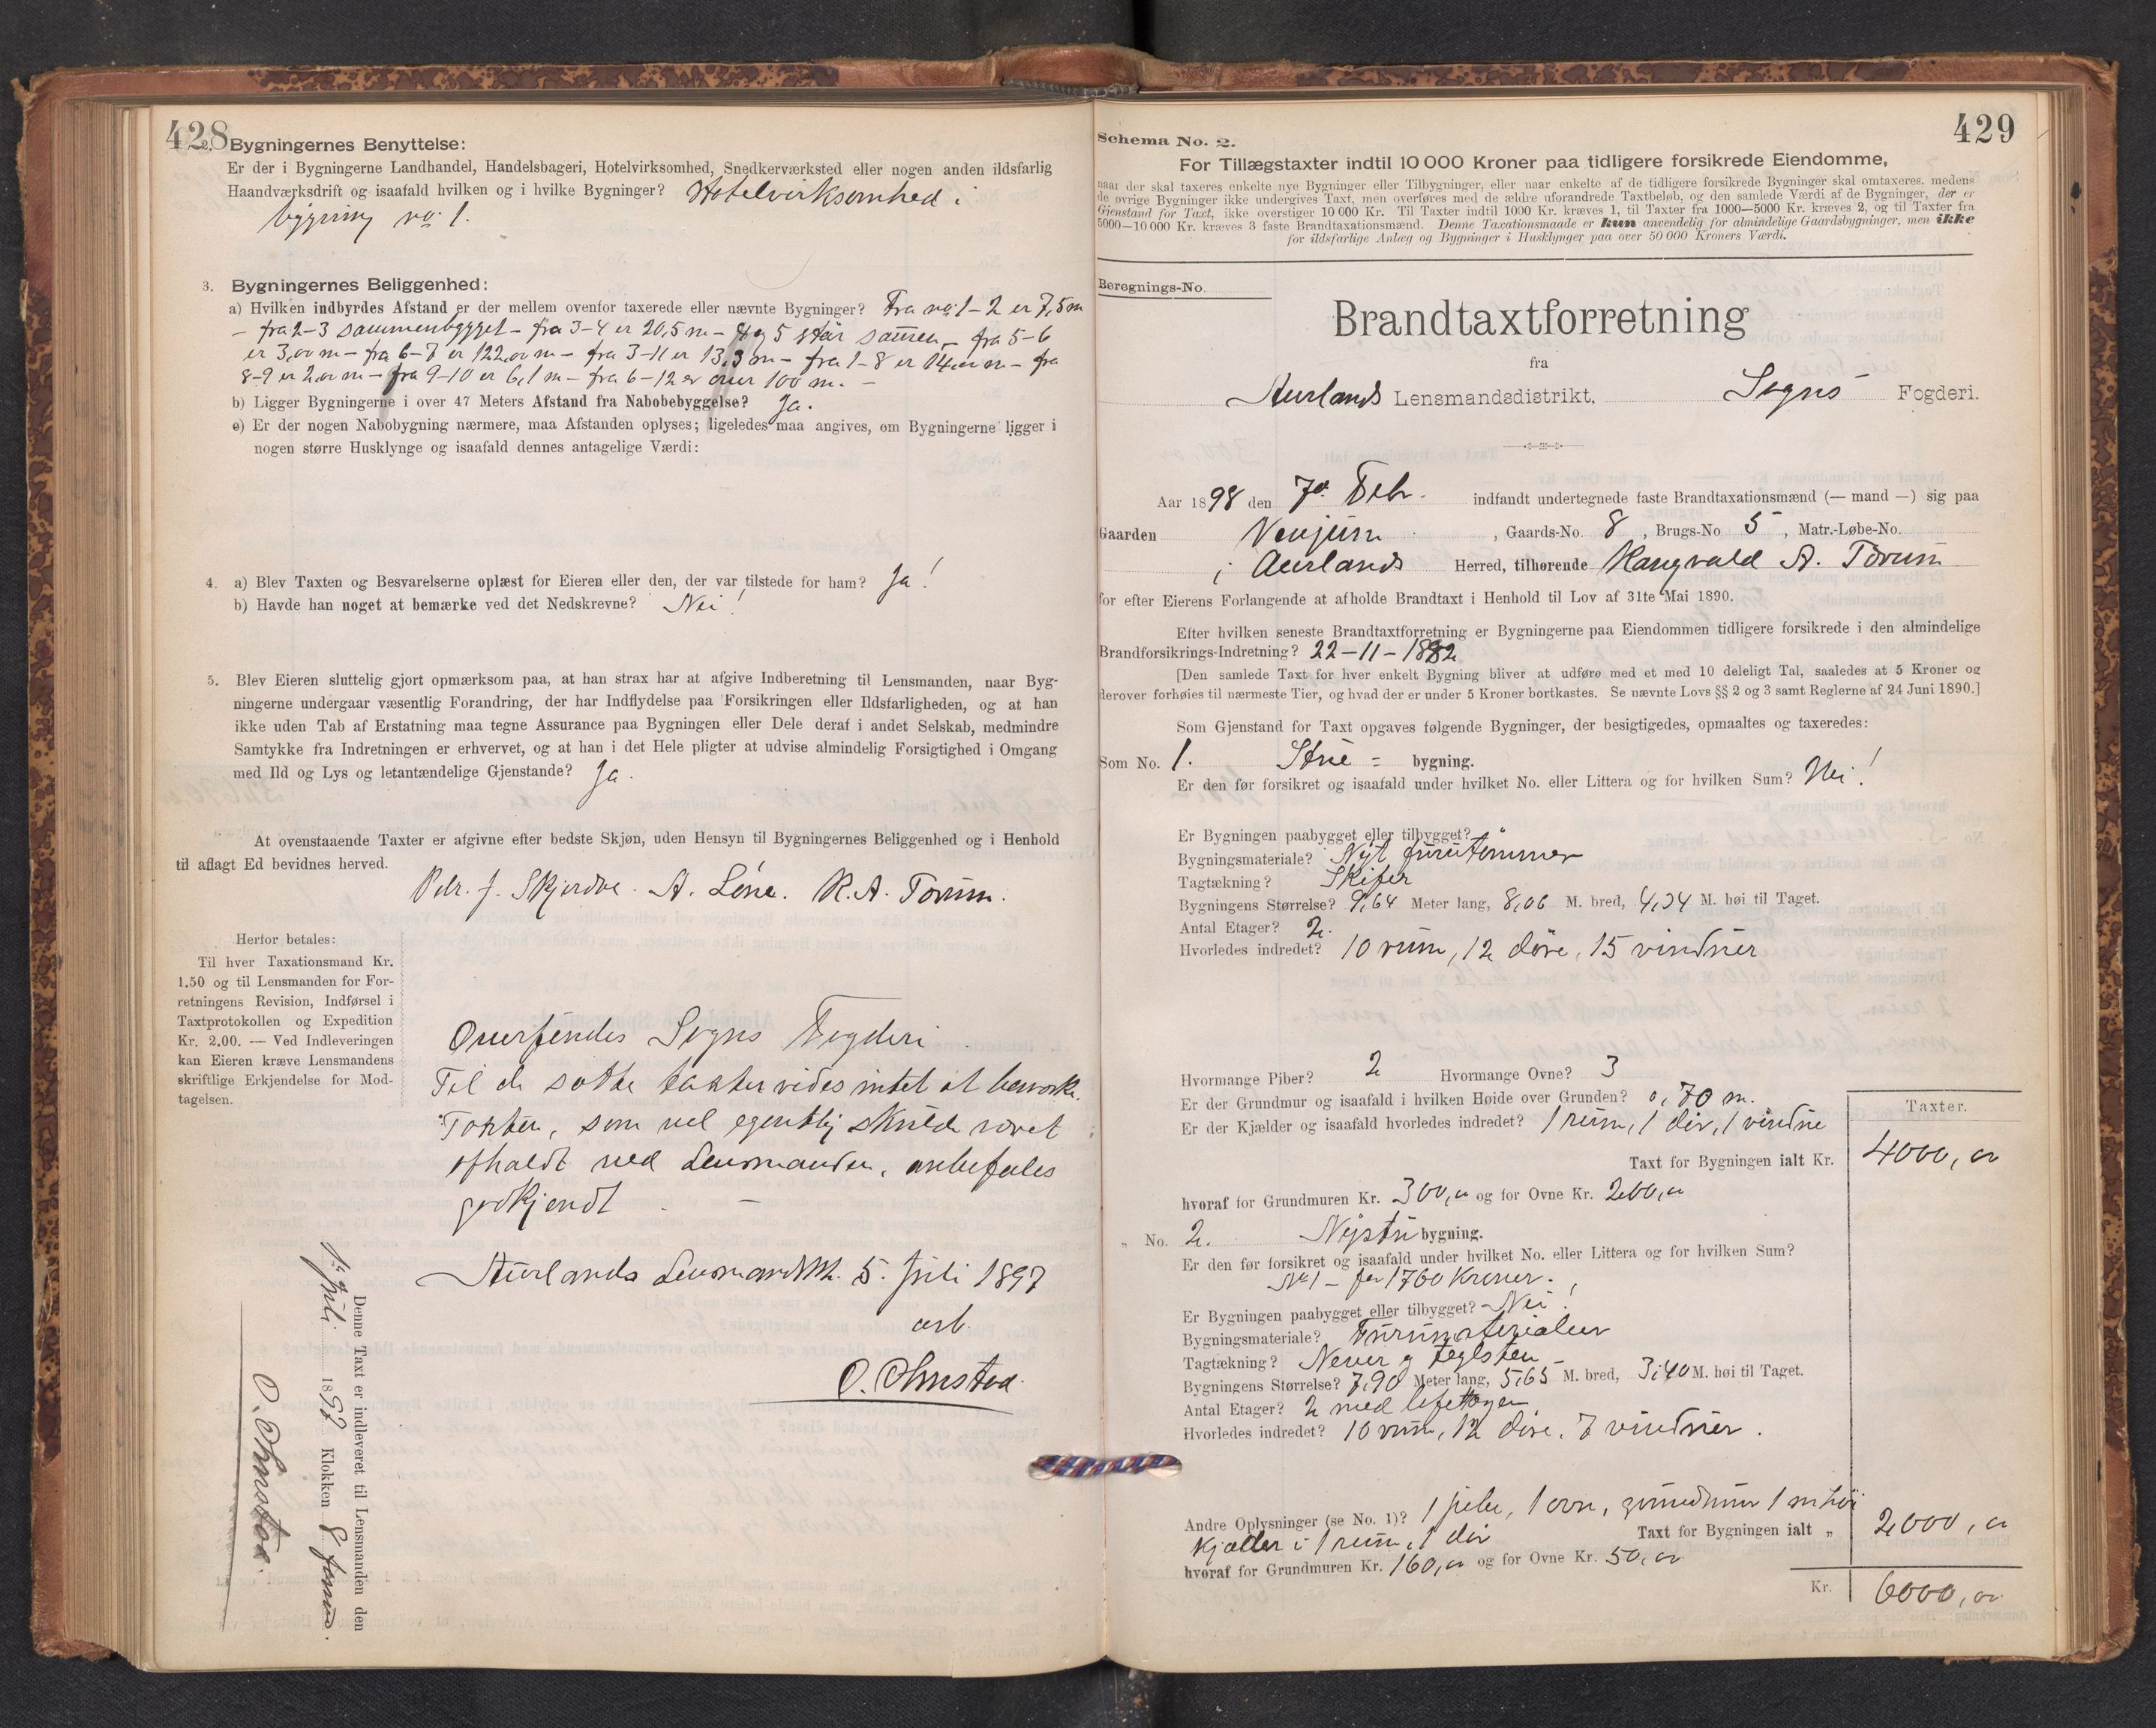 428
2. Bygningernes Benyttelse:
Er der i Bygningerne Landhandel, Handelsbageri, Hotelvirksomhed, Snedkerværksted eller nogen anden ildsfarlig
Haandværksdrift og isaafald hvilken og i hvilke Bygninger? Hotelvirksomhed i
bygning no: 1.
3. Bygningernes Beliggenhed:
a) Hvilken indbyrdes Afstand er der mellem ovenfor taxerede eller nævnte Bygninger? Fra no: 1-2 er 7,5 m
- fra 2-3 sammenbygget - fra 3-4 er 20,5 m - 4 og 5 står samen - fra 5-6
er 3,00 m - fra 6-7 er 122,00 m - fra 3-11 er 13,3 m - fra 1-8 er 14,00 m - fra
8-9 er 2,00 m - fra 9-10 er 6,1 m - fra 6-12 er over 100 m. -
b) Ligger Bygningerne i over 47 Meters Afstand fra Nabobebyggelse? Ja.
c) Er der nogen Nabobygning nærmere, maa Afstanden oplyses; ligeledes maa angives, om Bygningerne ligger i
nogen større Husklynge og isaafald dennes antagelige Værdi:
4. a) Blev Taxten og Besvarelserne oplæst for Eieren eller den, der var tilstede for ham? Ja!
b) Havde han noget at bemærke ved det Nedskrevne? Nei!
5. Blev Eieren sluttelig gjort opmærksom paa, at han strax har at afgive Indberetning til Lensmanden, naar Byg-
ningerne undergaar væsentlig Forandring, der har Indflydelse paa Forsikringen eller Ildsfarligheden, og at han
ikke uden Tab af Erstatning maa tegne Assurance paa Bygningen eller Dele deraf i andet Selskab, medmindre
Samtykke fra Indretningen er erhvervet, og at han i det Hele pligter at udvise almindelig Forsigtighed i Omgang
med Ild og Lys og letantændelige Gjenstande? Ja.
At ovenstaaende Taxter er afgivne efter bedste Skjøn, uden Hensyn til Bygningernes Beliggenhed og i Henhold
til aflagt Ed bevidnes herved.
Pdr. J. Skjerdve. A. Løne. R. A. Torum.
Herfor betales:
Til hver Taxationsmand Kr.
1.50 og til Lensmanden for For-
retningens Revision, Indførsel i
Taxtprotokollen og Expedition
Kr. 2.00. — Ved Indleveringen
kan Eieren kræve Lensmandens
skriftlige Erkjendelse for Mod-
tagelsen.
Oversendes Sogns Fogderi
Til de satte takter vides intet at bemerke.
Takten, som vel egentlig skulde været
afholdt ved Lensmanden, anbefales
godkjendt -
Aurlands Lensmandsk. 5. Juli 1897
arb.
O. Ohnstad.
Denne Taxt er indleveret til Lensmanden den
1ste Juli 1897 Klokken 8 form.
O. Ohnstad.
429
Schema No. 2.
For Tillægstaxter indtil 10 000 Kroner paa tidligere forsikrede Eiendomme,
naar der skal taxeres enkelte nye Bygninger eller Tilbygninger, eller naar enkelte af de tidligere forsikrede Bygninger skal omtaxeres, medens
de øvrige Bygninger ikke undergives Taxt, men overføres med de ældre uforandrede Taxtbeløb, og den samlede Værdi af de Bygninger, der er
Gjenstand for Taxt, ikke overstiger 10 000 Kr. Til Taxter indtil 1000 Kr. kræves 1, til Taxter fra 1000—5000 Kr. kræves 2, og til Taxter fra
5000—10 000 Kr. kræves 3 faste Brandtaxationsmænd. Denne Taxationsmaade er kun anvendelig for almindelige Gaardsbygninger, men ikke
for ildsfarlige Anlæg og Bygninger i Husklynger paa over 50 000 Kroners Værdi.
Beregnings-No.
Brandtaxtforretning
fra
Aurlands Lensmandsdistrikt, Sogns Fogderi.
Aar 1898 den 7de Febr. indfandt undertegnede faste Brandtaxationsmænd (— mand —) sig paa
Gaarden Venjum, Gaards-No. 8, Brugs-No 5, Matr.-Løbe-No.
i Aurlands Herred, tilhørende Rangvald A. Torum
for efter Eierens Forlangende at afholde Brandtaxt i Henhold til Lov af 31te Mai 1890.
Efter hvilken seneste Brandtaxtforretning er Bygningerne paa Eiendommen tidligere forsikrede i den almindelige
Brandforsikrings-Indretning? 22-11-1882
[Den samlede Taxt for hver enkelt Bygning bliver at udføre med et med 10 deleligt Tal, saaledes at 5 Kroner og
derover forhøies til nærmeste Tier, og hvad der er under 5 Kroner bortkastes. Se nævnte Lovs §§ 2 og 3 samt Reglerne af 24 Juni 1890.]
Som Gjenstand for Taxt opgaves følgende Bygninger, der besigtigedes, opmaaltes og taxeredes:
Som No. 1. Stue = bygning.
Er den før forsikret og isaafald under hvilket No. eller Littera og for hvilken Sum? Nei!
Er Bygningen paabygget eller tilbygget?
Bygningsmateriale? Nyt furutømmer
Tagtækning? Skifer
Bygningens Størrelse? 9,64 Meter lang, 8,06 M. bred, 4,24 M. høi til Taget.
Antal Etager? 2.
Hvorledes indredet? 10 rum, 12 døre, 15 vinduer
Hvormange Piber? 2 Hvormange Ovne? 3
Er der Grundmur og isaafald i hvilken Høide over Grunden? 0,70 m.
Er der Kjælder og isaafald hvorledes indredet? 1 rum, 1 dør, 1 vindue
Taxter.
Taxt for Bygningen ialt Kr. 4000,00
hvoraf for Grundmuren Kr. 300,00 og for Ovne Kr. 200,00
" No. 2. Nystu bygning.
Er den før forsikret og isaafald under hvilket No. eller Littera og for hvilken Sum?
No 1 - for 1760 Kroner.
Er Bygningen paabygget eller tilbygget? Nei!
Bygningsmateriale? Furumaterialier
Tagtækning? Never og teglsten
Bygningens Størrelse? 7,90 Meter lang, 5,65 M. bred, 3,40 M. høi til Taget.
Antal Etager? 2 med loftetagen
Hvorledes indredet? 10 rum, 12 døre, 7 vinduer.
Andre Oplysninger (se No. 1)? 1 pibe, 1 ovn, grundmur 1 m høi
Kjælder i 1 rum, 1 dør Taxt for Bygningen ialt „ 2000,00
hvoraf for Grundmuren Kr. 160,00 og for Ovne Kr. 50,00
Kr. 6000,00